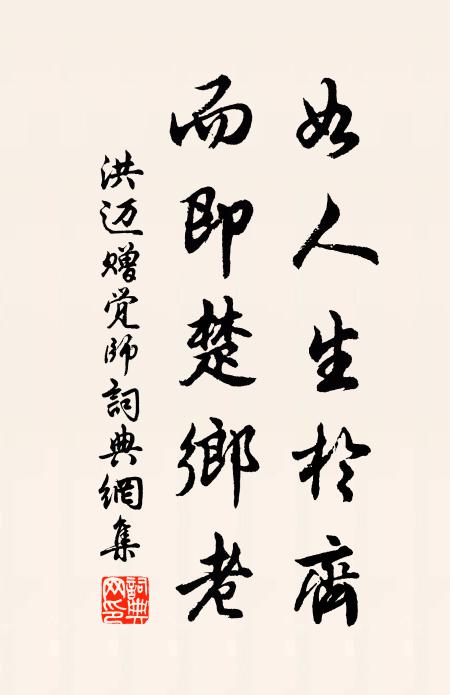 如人生於齊
而即楚鄉老
洪迈赠觉师詞典網集
詞典網印